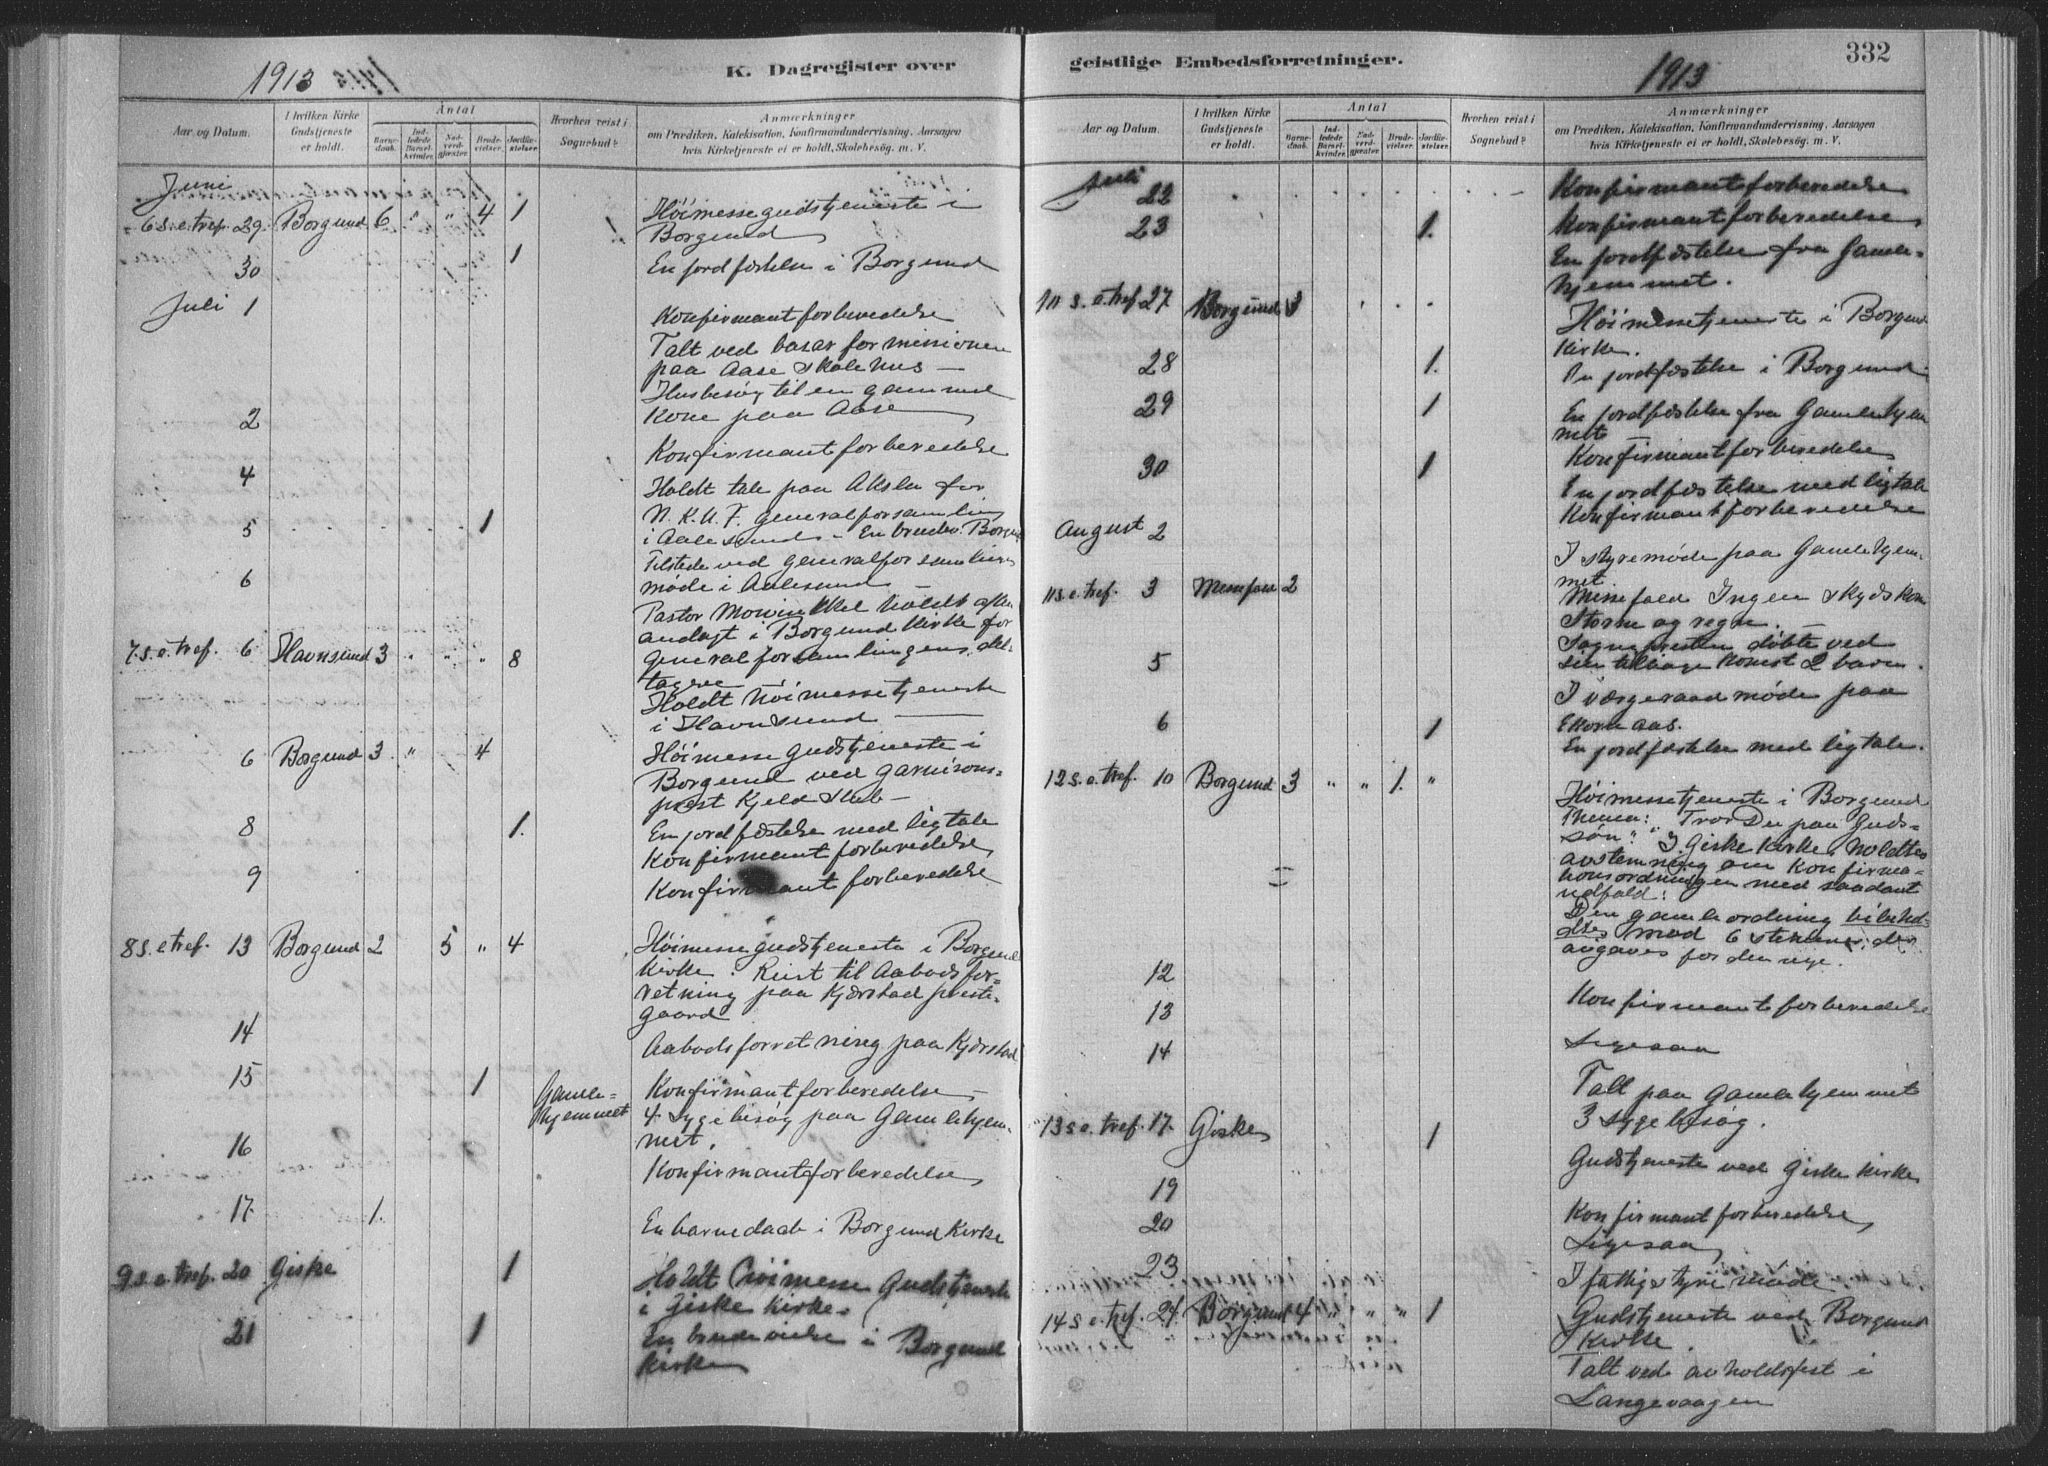 1913
K. Dagregister over
Aar og Datum.
I hvilken Kirke Gudstjeneste er holdt.
Antal
Barnedaab.
Indledede Barselkvinder.
Nadverdgjæster.
Brudevielser.
Jordfæstelser.
Hvorhen reist i Sognebud?
Anmærkninger
om Prædiken, Katekisation, Konfirmandundervisning, Aarsagen
hvis Kirketjeneste ei er holdt, Skolebesøg, m. V.
Juni
6 s. e. tref. 29. Borgund 6 " " 4 1 Höimessegudstjeneste i
Borgund
30 1 En jordfæstelse i Borgund
Juli 1 Konfirmantforberedelse
Talt ved basar for missionen
paa Aase skolehus —
Husbesøg til en gammel
2 Kone paa Aase
Konfirmantforberedelse
4 Holdt tale paa Aksla for
N. K. U. F. generalforsamling
5 1 i Aalesund - En brudev. Borgund
Tilstede ved generalforsamlings
6 møde i Aalesund —
Pastor Mowinckel holdt aften
andagt i Borgund Kirke for
7. s. e. tref. 6 Havnsund 3 " " " 8 Generalforsamlingens del-
tagere
Holdt höimessetjeneste
i Havnsund —
6 Borgund 3 " 4 Höimesse gudstjeneste i
Borgund ved garnisons-
prest Kjeld Stub —
8 1. En jordfæstelse med ligtale
Konfirmantforberedelse
9 Konfirmantforberedelse
8 s. e. tref. 13 Borgund 2 5 " 4 Höimessegudstjeneste i Borgund
Kirke. Reist til Aabodsfor-
retning paa Kjærstad preste-
gaard
14 Aabodsforretning paa Kjærstad
15 1 Gamle-
hjemmet Konfirmantforberedelse —
4 sygebesøg paa Gamlehjem-
met.
16 Konfirmantforberedelse
17. 1. En barnedaab i Borgund Kirke
9 s. e. tref. 20 Giske 1 Holdt höimesse Gudstjeneste
i Giske Kirke.
21 1 En brudevielse i Borgund
Kirke
geistlige Embedsforretninger.
1913
332
Aar og Datum.
I hvilken Kirke Gudstjeneste er holdt.
Antal
Barnedaab.
Indledede Barselkvinder.
Nadverdgjæster.
Brudevielser.
Jordfæstelser.
Hvorhen reist i Sognebud?
Anmærkninger
om Prædiken, Katekisation, Konfirmandundervisning, Aarsagen
hvis Kirketjeneste ei er holdt, Skolebesøg, m. V.
Juli 22 Konfirmantforberedelse
23 1. Konfirmantforberedelse
En jordfæstelse fra Gamle-
hjemmet.
10 s. e. tref. 27 Borgund 3 Höimessetjeneste i Borgund
Kirke.
28 1. En jordfæstelse i Borgund
29 1 En jordfæstelse fra Gamlehjem
met
Konfirmantforberedelse
30 1 En jordfæstelse med ligtale
Konfirmantforberedelse
August 2 I styremøde paa Gamlehjem-
met
11 s. e. tref. 3 Messefald 2 Messefald Ingen skyds kom
Storm og regn. —
Sognepresten döbte ved
sin tilbage komst 2 barn.
5 I værgeraadmøde paa
Ekornaas.
6 1 En jordfæstelse med ligtale.
12 s. e. tref. 10 Borgund 3 " " 1. " Höimessetjeneste i Borgund
Thema: "Tror Du paa Guds-
søn". I Giske Kirke holdtes
avstemning om Konfirma-
tionsordningen med saadant
udfald:
Den gamle ordning bibehol-
dtes mod 6 stemmer, der
avgaves for den nye.
12 Konfirmantforberedelse
13 Ligesaa
14 Talt paa Gamlehjemmet
3 sygebesøg.
13 s. e. tref. 17. Giske 1 Gudstjeneste ved Giske Kirke
19 Konfirmantforberedelse
20 Ligesaa
23 I fattigstyremøde
14 s. e. tref. 24 Borgund 4 " " " 1 Gudstjeneste ved Borgund
Kirke.
Talt ved avholdsfest i
Langevaagen